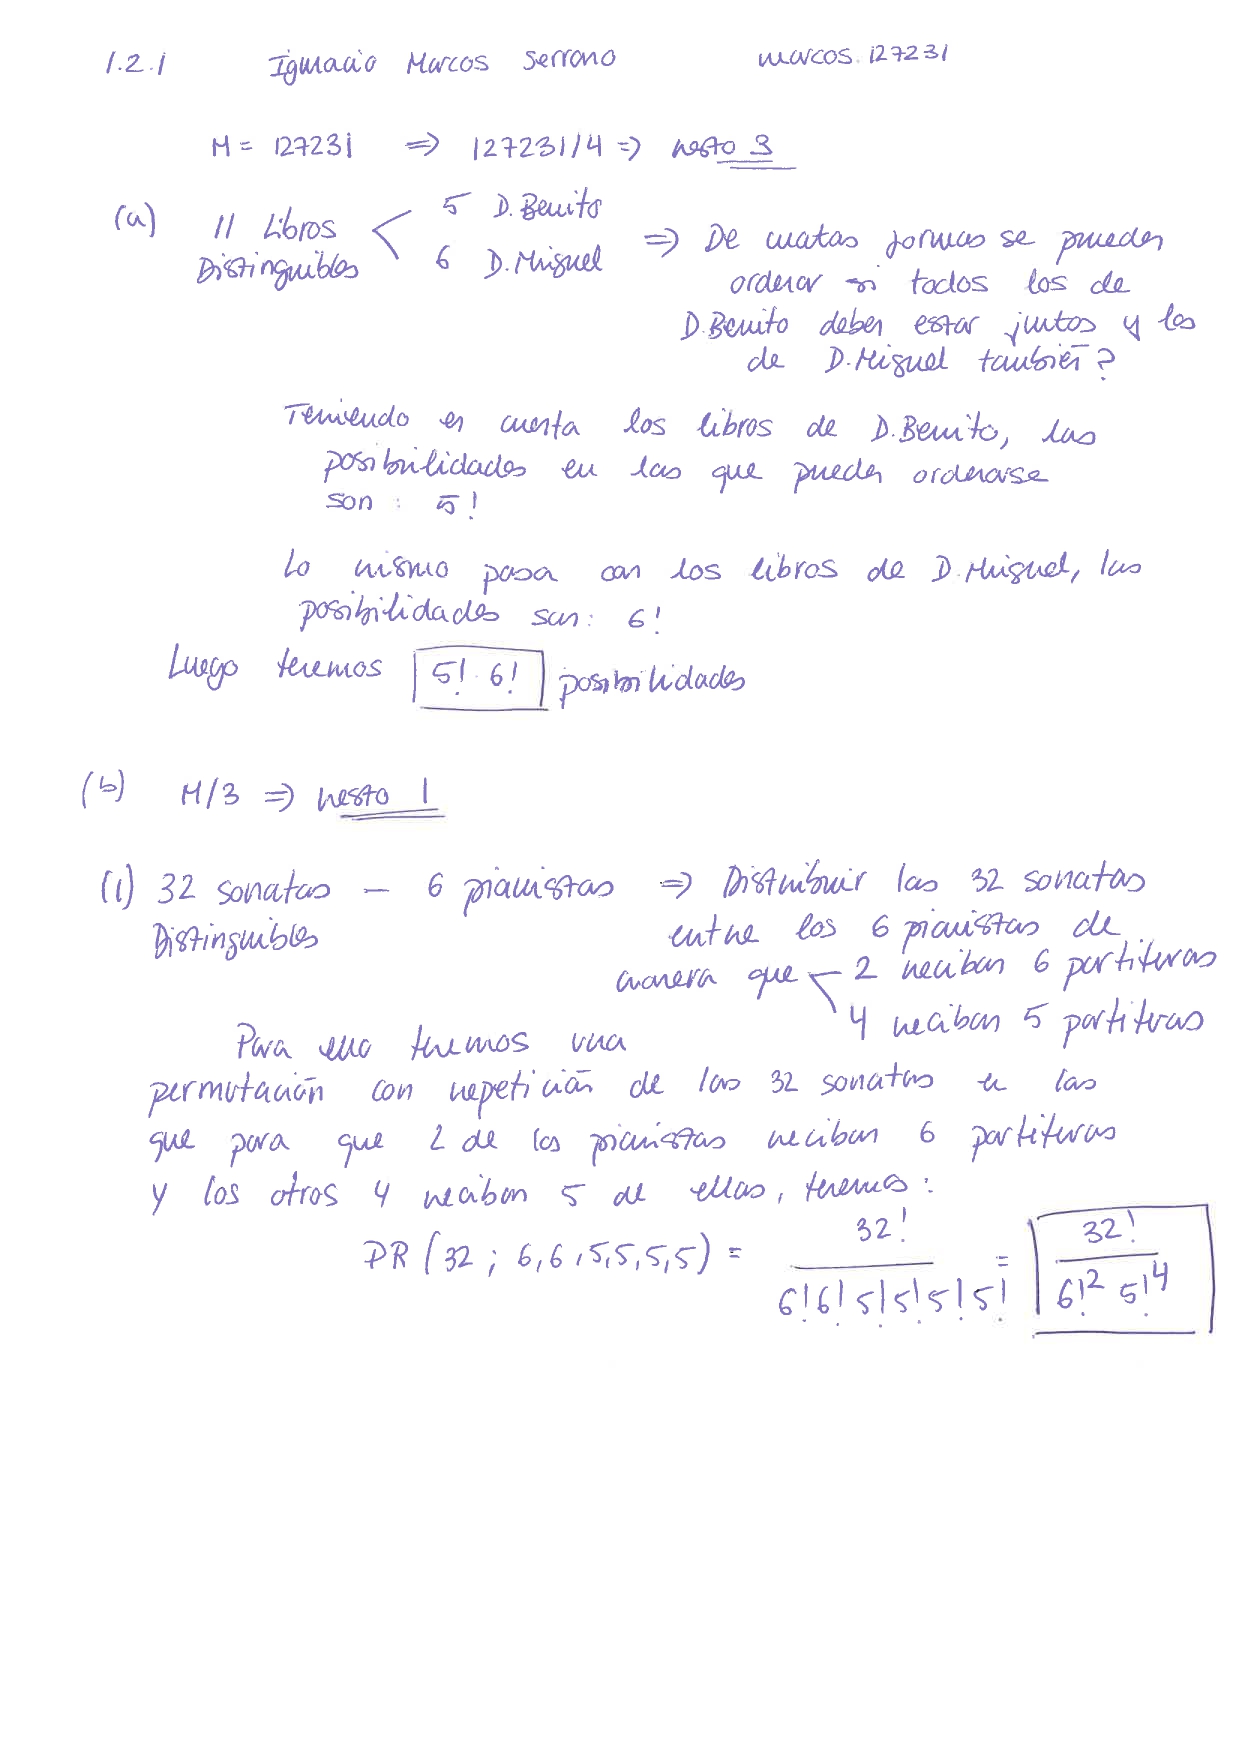 1.2.1 Ignacio Marcos Serrano marcos.127231
M = 127231 => 127231/4 => resto 3
(a) 11 Libros Distinguibles
5 D. Benito
6 D. Miguel
=> De cuatas formas se pueden
ordenar si todos los de
D. Benito deben estar juntos y los
de D. Miguel también?
Teniendo en cuenta los libros de D. Benito, las
posibilidades en las que pueden ordenarse
son : 5!
Lo mismo pasa con los libros de D. Miguel, las
posibilidades son: 6!
Luego tenemos 5! · 6! posibilidades
(b) M/3 => resto 1
(i) 32 sonatas – 6 pianistas => Distribuir las 32 sonatas
Distinguibles entre los 6 pianistas de
manera que 2 reciban 6 partituras
4 reciban 5 partituras
Para ello tenemos una
permutación con repetición de las 32 sonatas en las
que para que 2 de los pianistas reciban 6 partituras
y los otros 4 reciban 5 de ellas, tenemos:
PR (32 ; 6,6,5,5,5,5) = 32! / 6!6!5!5!5!5! = 32! / 6!² 5!⁴